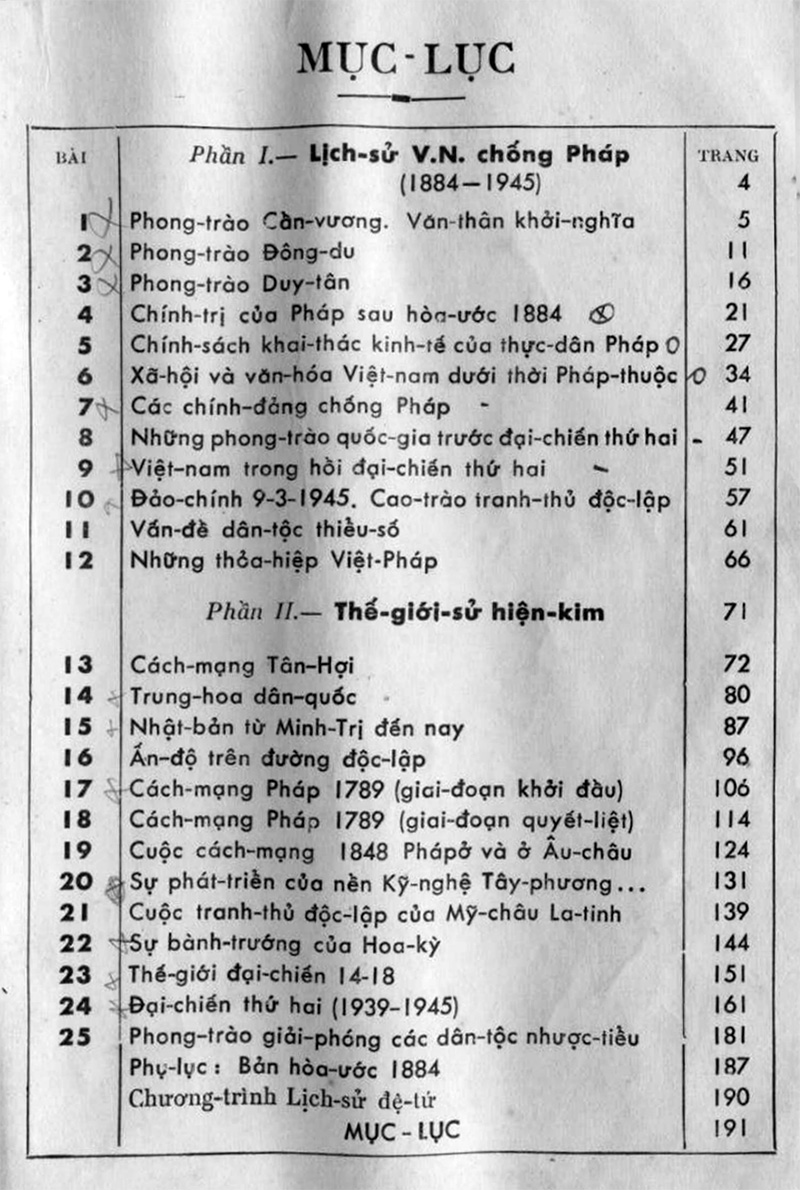 MỤC-LỤC
BÀI Phần I.— Lịch-sử V.N. chống Pháp TRANG
(1884—1945) 4
1 Phong-trào Cần-vương. Văn-thân khởi-nghĩa 5
2 Phong-trào Đông-du 11
3 Phong-trào Duy-tân 16
4 Chính-trị của Pháp sau hòa-ước 1884 21
5 Chính-sách khai-thác kinh-tế của thực-dân Pháp 27
6 Xã-hội và văn-hóa Việt-nam dưới thời Pháp-thuộc 34
7 Các chính-đảng chống Pháp 41
8 Những phong-trào quốc-gia trước đại-chiến thứ hai 47
9 Việt-nam trong hồi đại-chiến thứ hai 51
10 Đảo-chính 9-3-1945. Cao-trào tranh-thủ độc-lập 57
11 Vấn-đề dân-tộc thiểu-số 61
12 Những thỏa-hiệp Việt-Pháp 66
Phần II.— Thế-giới-sử hiện-kim 71
13 Cách-mạng Tân-Hợi 72
14 Trung-hoa dân-quốc 80
15 Nhật-bản từ Minh-Trị đến nay 87
16 Ấn-độ trên đường độc-lập 96
17 Cách-mạng Pháp 1789 (giai-đoạn khởi đầu) 106
18 Cách-mạng Pháp 1789 (giai-đoạn quyết-liệt) 114
19 Cuộc cách-mạng 1848 Phápở và ở Âu-châu 124
20 Sự phát-triển của nền Kỹ-nghệ Tây-phương... 131
21 Cuộc tranh-thủ độc-lập của Mỹ-châu La-tinh 139
22 Sự bành-trướng của Hoa-kỳ 144
23 Thế-giới đại-chiến 14-18 151
24 Đại-chiến thứ hai (1939-1945) 161
25 Phong-trào giải-phóng các dân-tộc nhược-tiểu 181
Phụ-lục : Bản hòa-ước 1884 187
Chương-trình Lịch-sử đệ-tứ 190
MỤC-LỤC 191